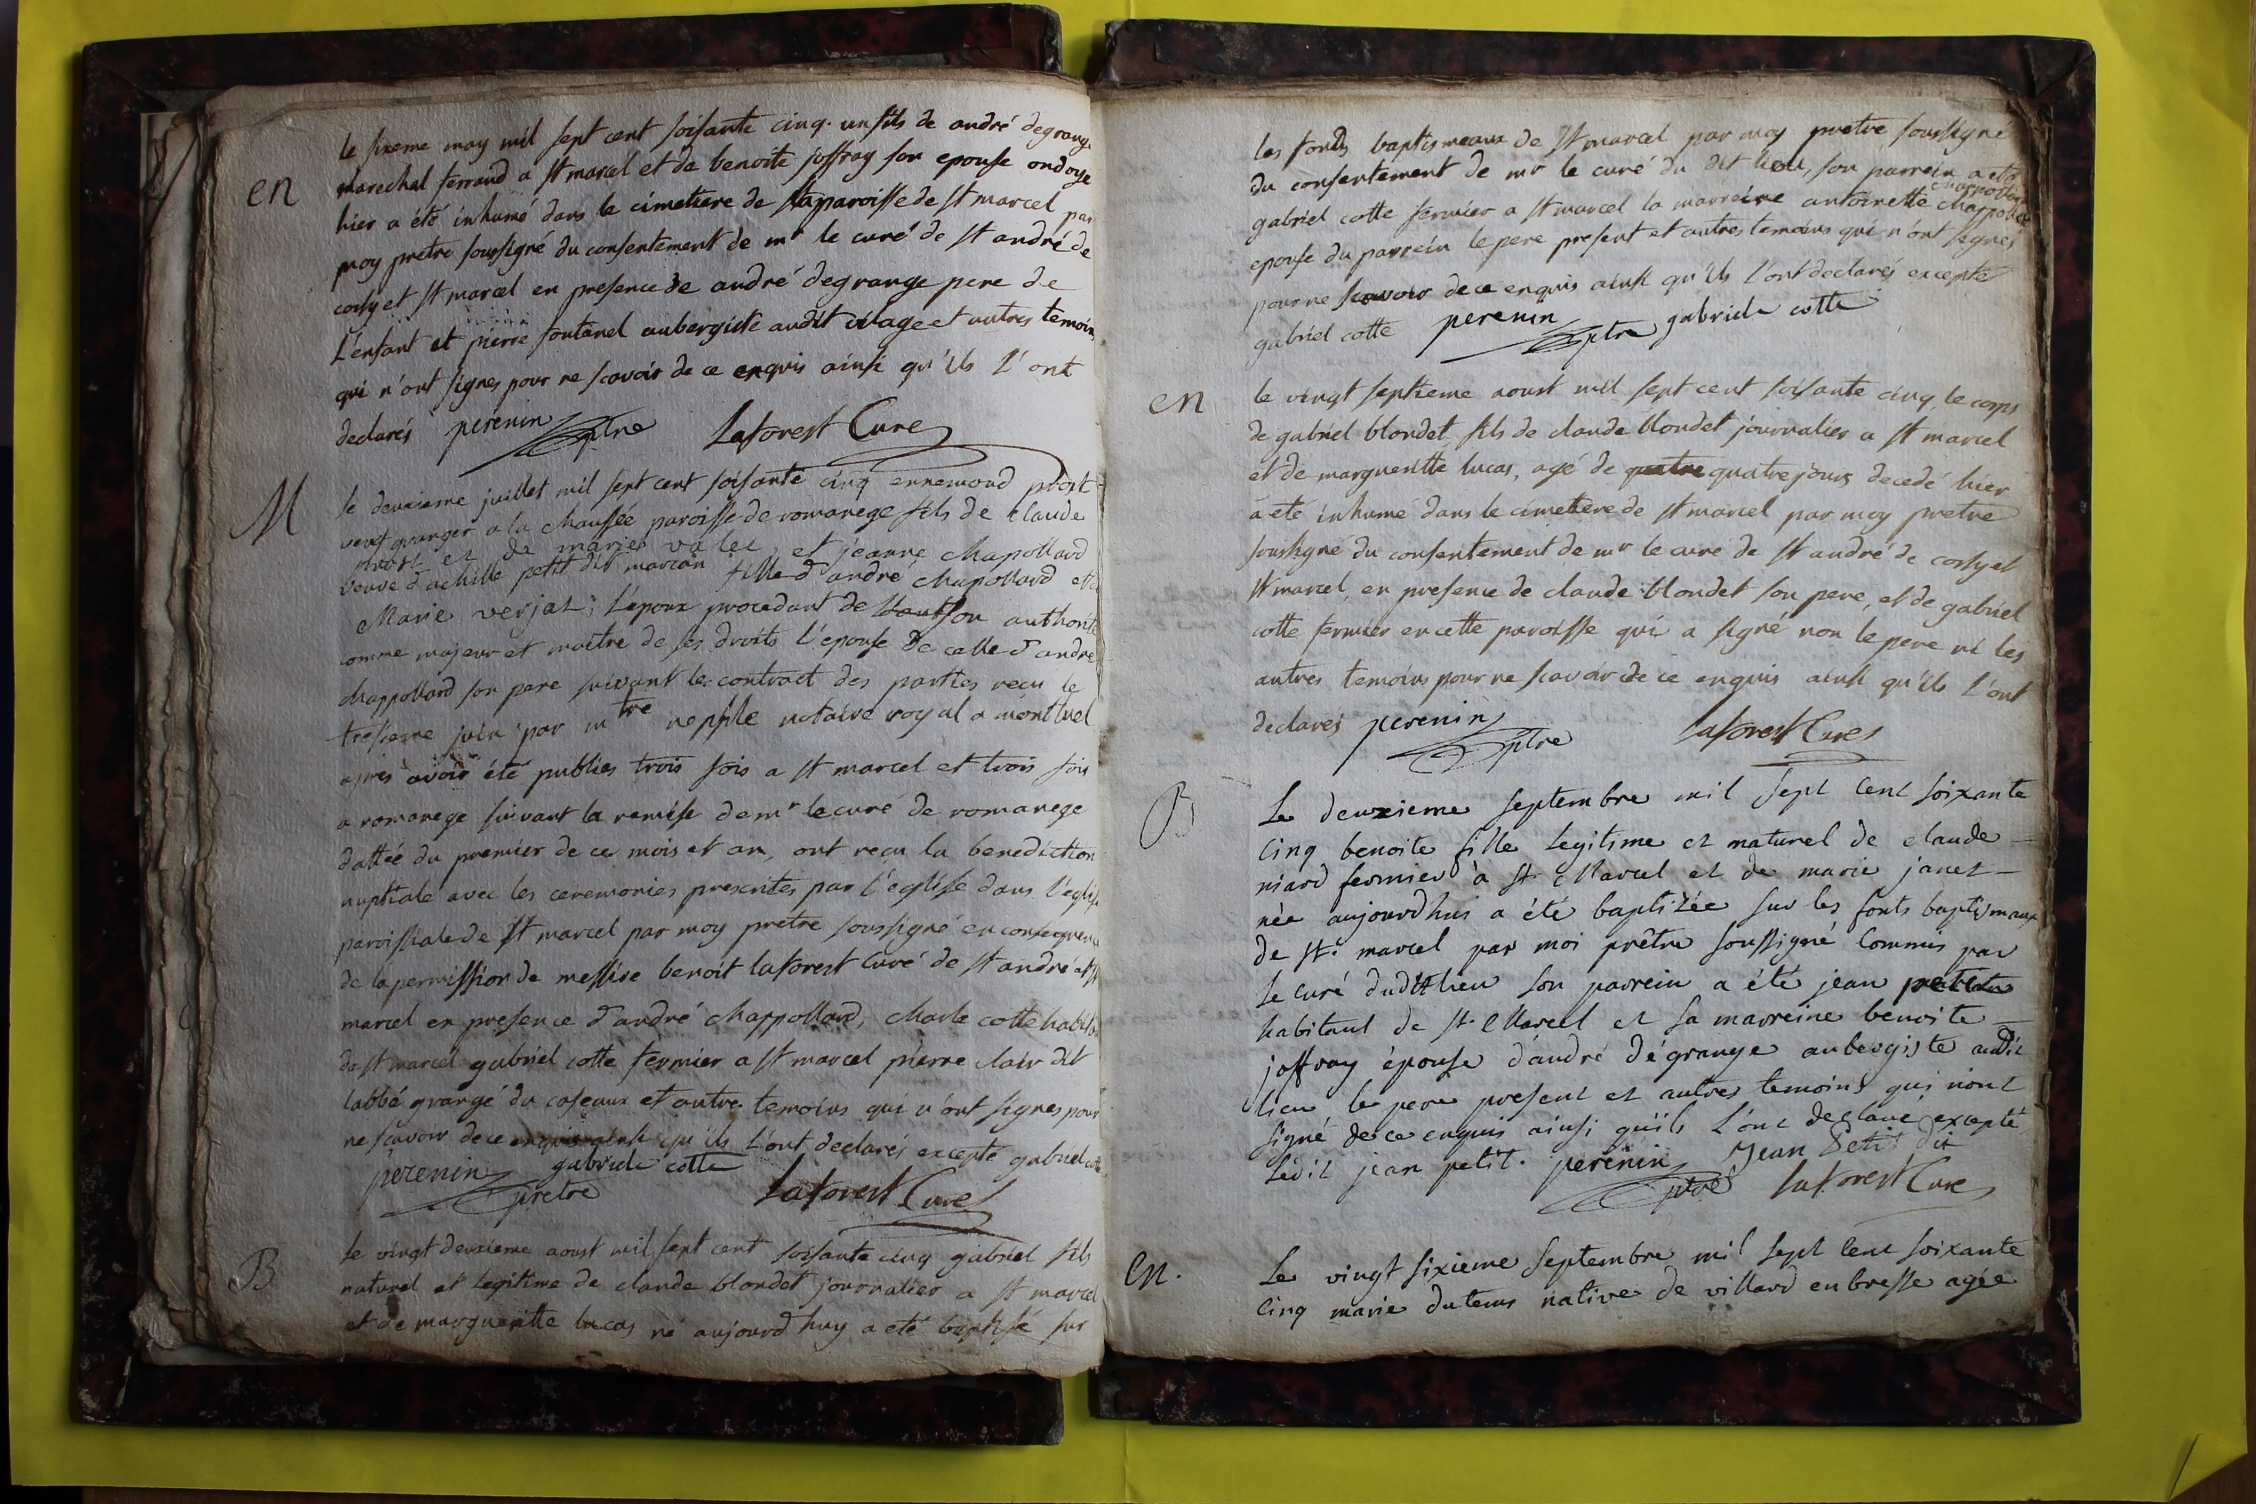 en
le sixeme may mil sept cent soisante cinq. un fils de andré degrange
marechal ferrand a st marcel et de benoite joffray son epouse ondoye
hier a été inhumé dans le cimetiere de la paroisse de st marcel par
moy pretre soussigné du consentement de mr le curé de st andré de
corsy et st marcel en presence de andré degrange pere de
L'enfant et pierre fontanel aubergiste audit vilage et autres temoins
qui n'ont signes pour ne scavoir de ce enquis ainsi qu'ils l'ont
declarés perenin ptre Laforest Curé
M
le deuxieme juillet mil sept cent soisante cinq ennemond prost
veuf granger a la chaussée paroisse de romanege fils de claude
prost et de marie valet, et jeanne chapollard
veuve d'achille petit dit marcan fille d'andré chapollard et de
Marie verjat; l'epoux procedant de son authorité
comme majeur et maitre de ses droits l'epouse de celle d'andré
chappollard son pere suivant le contract des parties recu le
tresieme juin par mtre nepple notaire royal a montluel
apres avoir été publiés trois fois a st marcel et trois fois
a romanege suivant la remise de mr le curé de romanege
dattée du premier de ce mois et an, ont recu la benediction
nuptiale avec les ceremonies prescrites par l'eglise dans l'eglise
paroissiale de st marcel par moy pretre soussigné en consequence
de la permission de messire benoit laforest Curé de st andré et st
marcel en presence d'andré chappollard, charle cotte habitant
de st marcel gabriel cotte fermier a st marcel pierre clair dit
labbé grangé du caseaux et autre temoins qui n'ont signes pour
ne scavoir de ce enquis ainsi qu'ils l'ont declarés excepté gabriel cotte
perenin pretre gabriele cotte Laforest Curé
B
le vingt deuxieme aoust mil sept cent soisante cinq gabriel fils
naturel et legitime de claude blondet journalier a st marcel
et de margueritte lucas né aujourd'huy a eté baptisé sur
les fonds baptismeaux de st marcel par moy pretre soussigné
du consentement de mr le curé du dit lieu, son parrein a eté
gabriel cotte fermier a st marcel la marreine antoinette chappollard
epouse du parrein le pere present et autres temoins qui n'ont signés
pour ne scavoir de ce enquis ainsi qu'ils l'ont declarés excepté
gabriel cotte perenin ptre gabriele cotte
en
le vingt septieme aoust mil sept cent soisante cinq, le corps
de gabriel blondet, fils de claude blondet journalier a st marcel
et de margueritte lucas, agé de quatre quatre jours decedé hier
a eté inhumé dans le cimetiere de st marcel par moy pretre
soussigné du consentement de mr le curé de st andré de corsy et
st marcel, en presence de claude blondet son pere, et de gabriel
cotte fermier en cette paroisse qui a signé non le pere ni les
autres temoins pour ne scavoir de ce enquis ainsi qu'ils l'ont
declarés perenin ptre Laforest Curé
B
Le deuxieme septembre mil sept cent soixante
cinq benoite fille legitime et naturel de claude
niard fermier à st Marcel et de marie janet
née aujourdhui a été baptizée sur les fonts baptismaux
de st. marcel par moi prêtre soussigné commis par
le curé dudit lieu son parrein a été jean petit
habitant de st. Marcel et sa marreine benoite
joffray épouse d'andré dégrange aubergiste audit
lieu le pere present et autres temoins qui n'ont
signé de ce enquis ainsi qu'ils l'ont declaré excepté
ledit jean petit. perenin ptre Jean Petit dit
Laforest Curé
En.
Le vingt sixieme Septembre mil sept cent soixante
cinq marie dutems native de villard en bresse agée